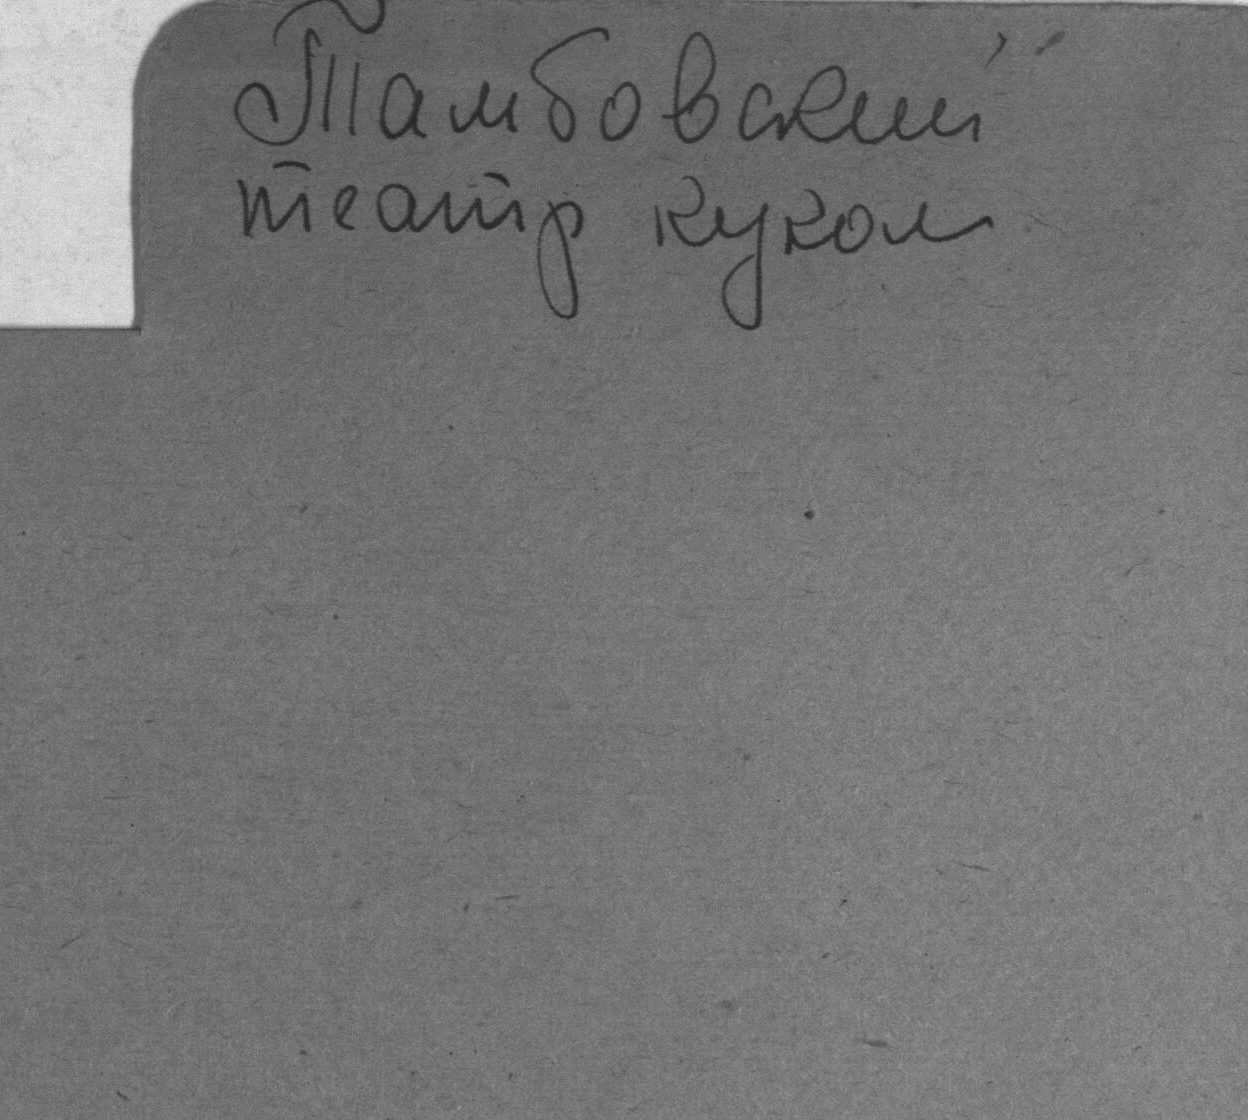 Тамбовский
театр кукол